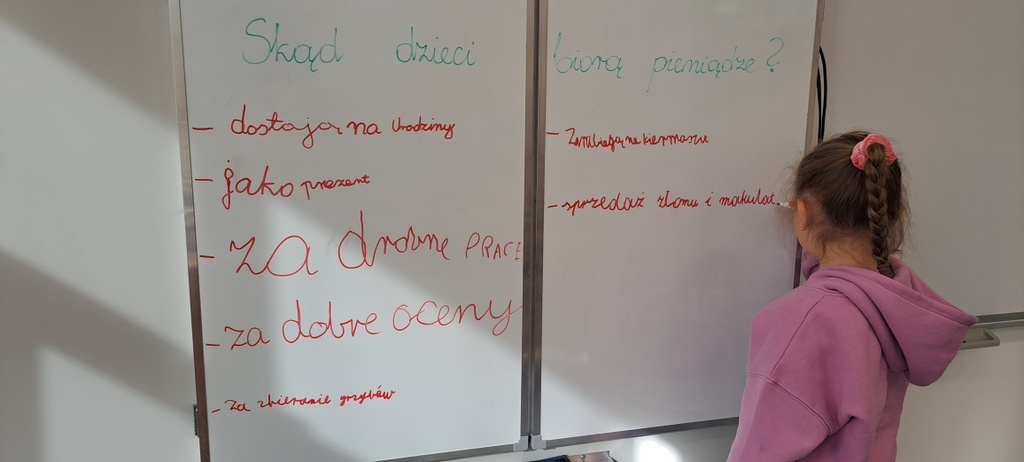 Skąd dzieci biorą pieniądze?
- dostają na Urodziny
- jako prezent
- za drobne PRACE
- za dobre oceny
- za zbieranie grzybów
- Zarabiają na kiermaszu
- sprzedaż złomu i makulat.